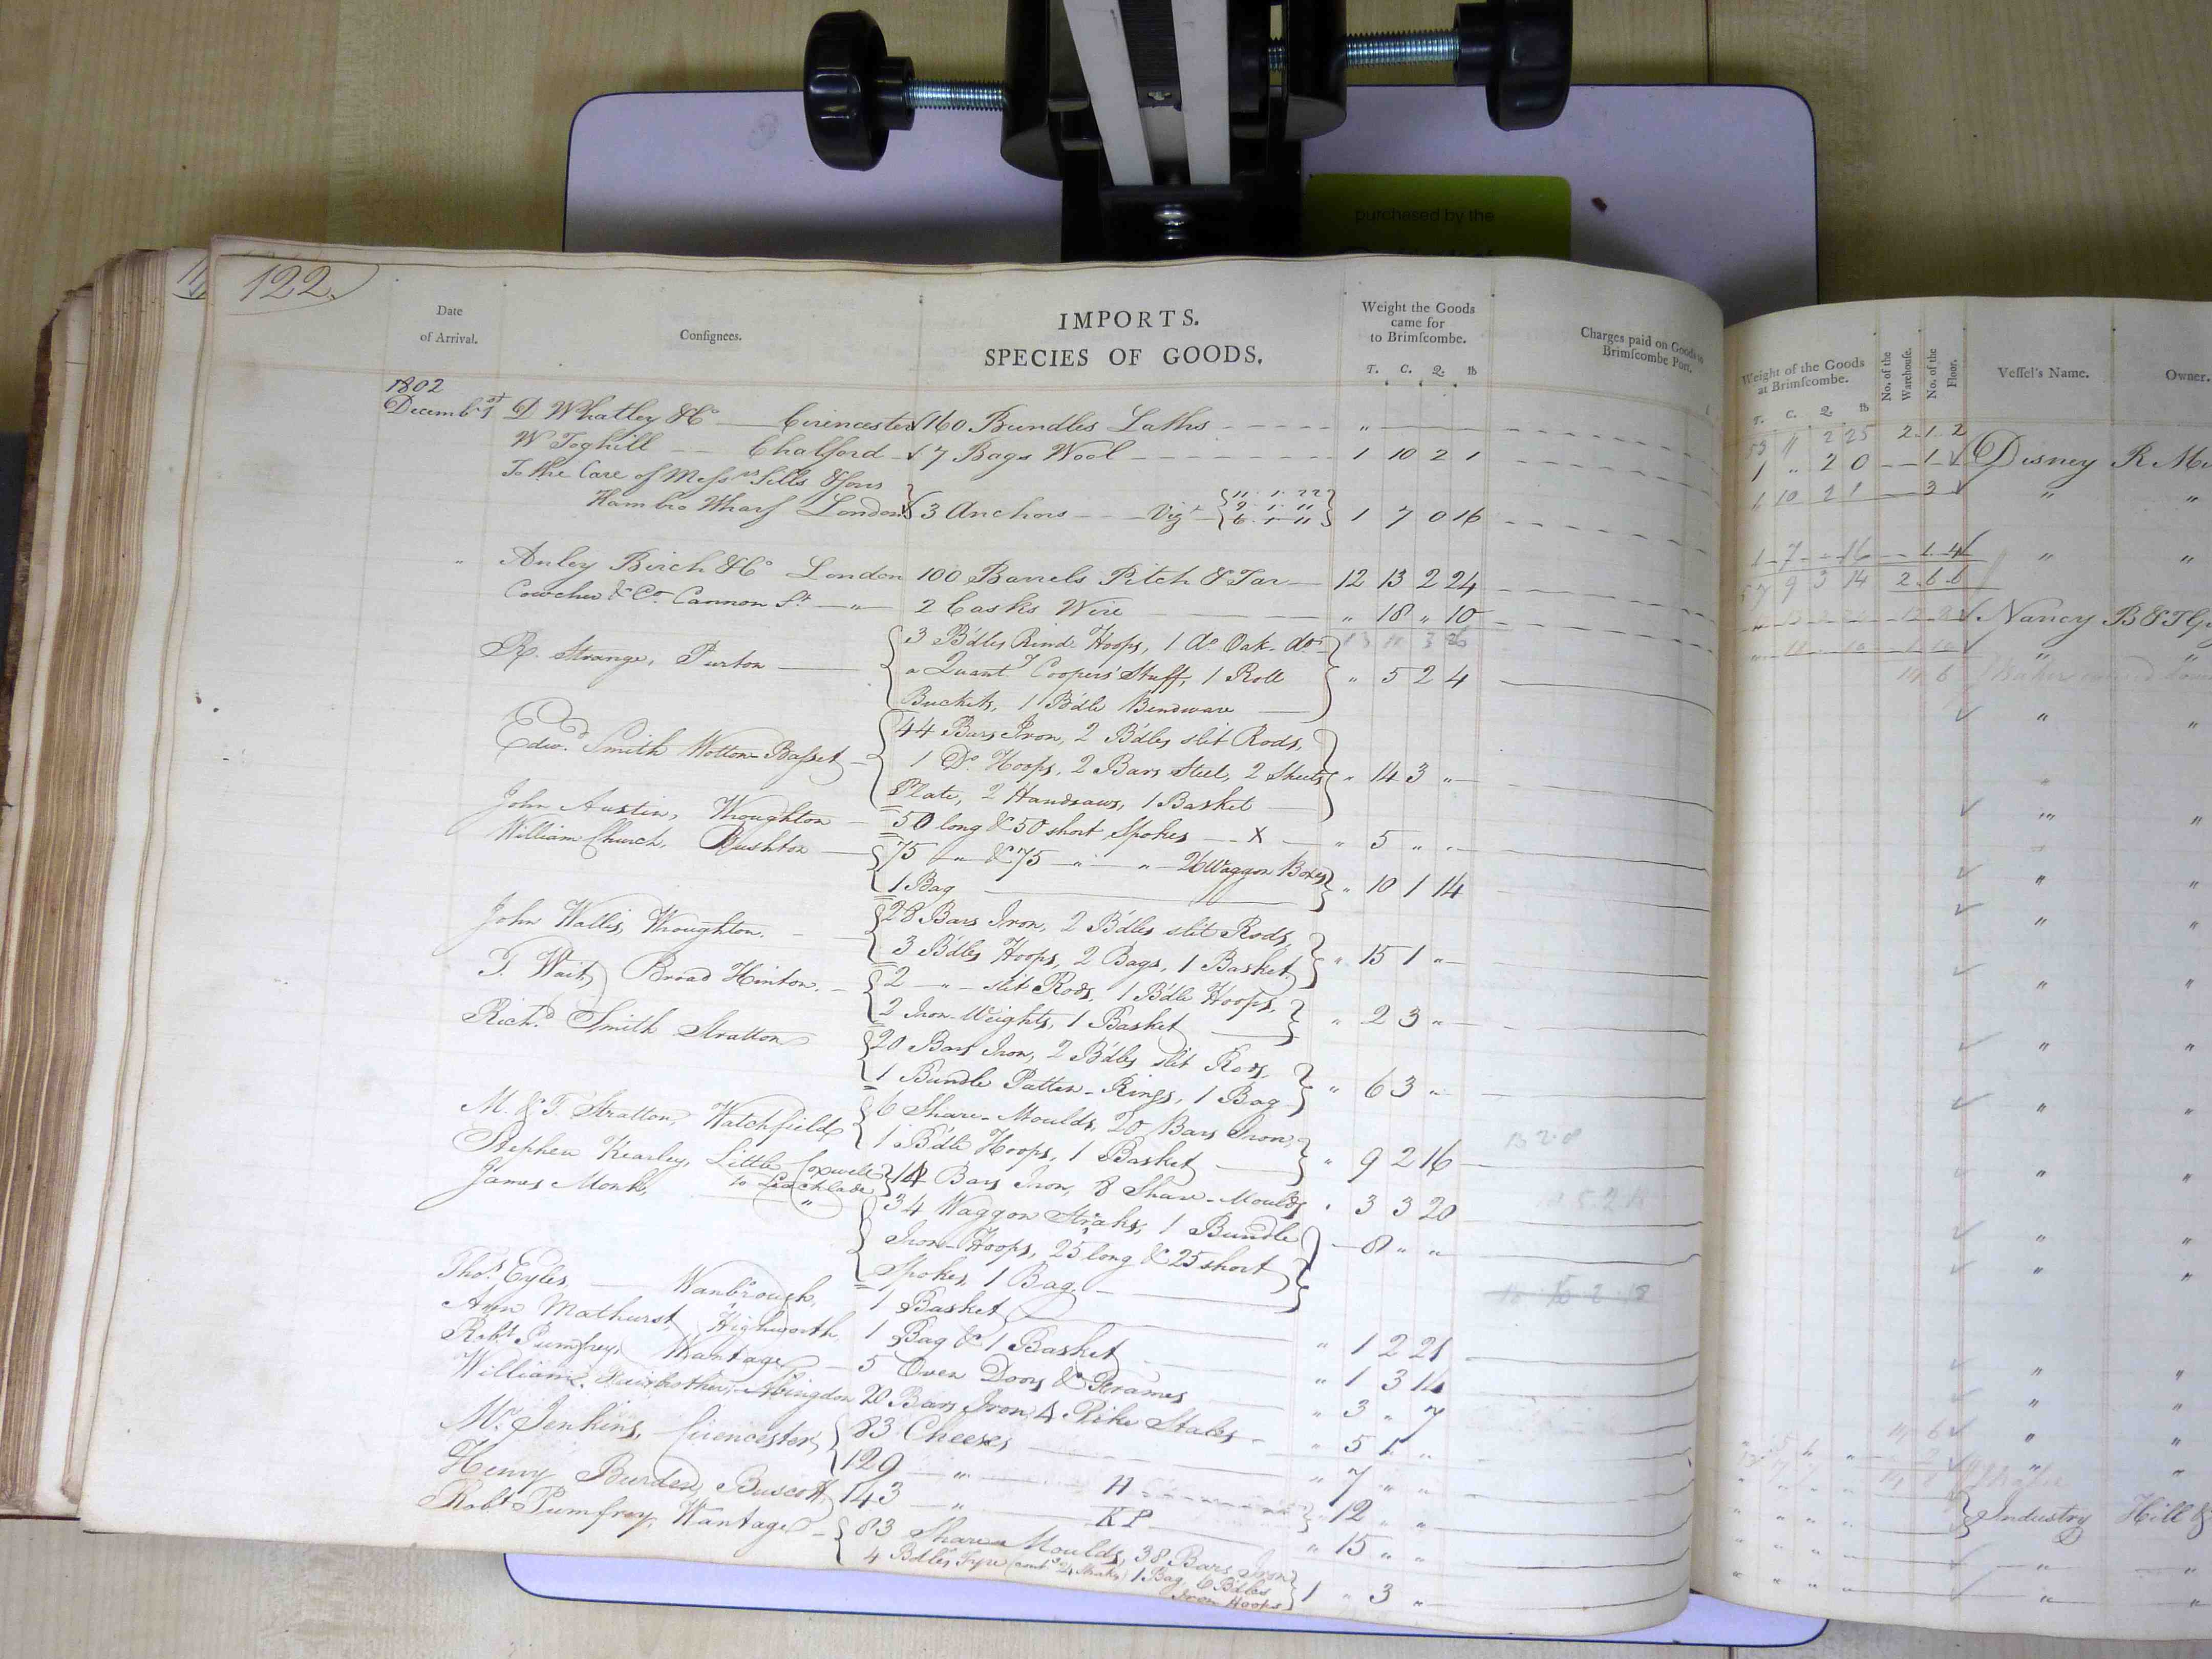 purchased by the
122.
Date
of Arrival.
Consignees.
IMPORTS.
SPECIES OF GOODS.
Weight the Goods
came for
to Brimscombe.
T. C. Q. lb
Charges paid on Goods to
Brimscombe Port.
Weight of the Goods
at Brimscombe.
T. C. Q. lb
No. of the
Warehouse.
No. of the
Floor.
Vessel's Name.
Owner.
1802
Decemb. 1st D Whatley & Co Cirencester 160 Bundles Laths "
W Toghill Chalford 7 Bags Wool 1 10 2 1
To the Care of Messrs Sills & Sons
Hambro Wharf London 3 Anchors Vizt 1 7 0 16
11 1 22
9 1 11
6 1 11
" Anley Birch & Co London 100 Barrels Pitch & Tar 12 13 2 24
Cowcher & Co. Cannon St " 2 Casks Wire " 18 " 10
R. Strange, Purton 3 B'dles Rind Hoops, 1 do Oak do
a Quanty Coopers' Stuff, 1 Roll " 5 2 4
Buckets, 1 B'dle Bendware
Edwd. Smith Wotton-Basset 44 Bars Iron, 2 B'dles slit Rods,
1 Do. Hoops, 2 Bars Steel, 2 Sheets " 14 3 "
Plate, 2 Handsaws, 1 Basket
John Austin, Wroughton 50 long & 50 short Spokes X " 5 " "
William Church, Bushton 75 " & 75 " " 26 Waggon Boxes
1 Bag " 10 1 14
John Wallis, Wroughton. 28 Bars Iron, 2 B'dles slit Rods,
3 B'dles Hoops, 2 Bags, 1 Basket " 15 1 "
T. Wait, Broad Hinton. 2 " slit Rods, 1 B'dle Hoops,
2 Iron-Weights, 1 Basket " 2 3 "
Richd. Smith Stratton 20 Bars Iron, 2 B'dles slit Rods,
1 Bundle Patten-Rings, 1 Bag " 6 3 "
M. & T. Stratton, Watchfield 6 Share-Moulds, 20 Bars Iron,
1 B'dle Hoops, 1 Basket " 9 2 16
Stephen Kearley, Little Coxwell 14 Bars Iron, 8 Share-Moulds " 3 3 20
to Leachlade
James Monk, " 34 Waggon Straks, 1 Bundle
Iron-Hoops, 25 long & 25 short 8 " "
Spokes, 1 Bag.
Thos. Eyles, Wanbrough, 1 Basket " 1 2 21
Ann Mathurst, Highworth, 1 Bag & 1 Basket " 1 3 14
Robt. Pumfrey, Wantage 5 Oven Doors & Frames " 3 " 7
William Abingdon 20 Bars Iron, 4 Pike Stales " 5 1 "
Mr. Jenkins, Cirencester, 83 Cheeses " 7 " "
129 " H " 12 " "
Henry Burden, Buscott, 143 " KP " 15 " "
Robt. Pumfrey, Wantage 83 Share Moulds, 38 Bars Iron
4 Bdles Tyre (contg 24 Straks) 1 Bag, 6 B'dles
Iron Hoops 1 " 3 "
53 " 2 25 2 1 2
1 " 2 0 1 Disney
1 10 2 1 3 " "
1 7 " 16 1 4 " "
57 9 3 14 2 6 6
Nancy B & T
Industry Hill &